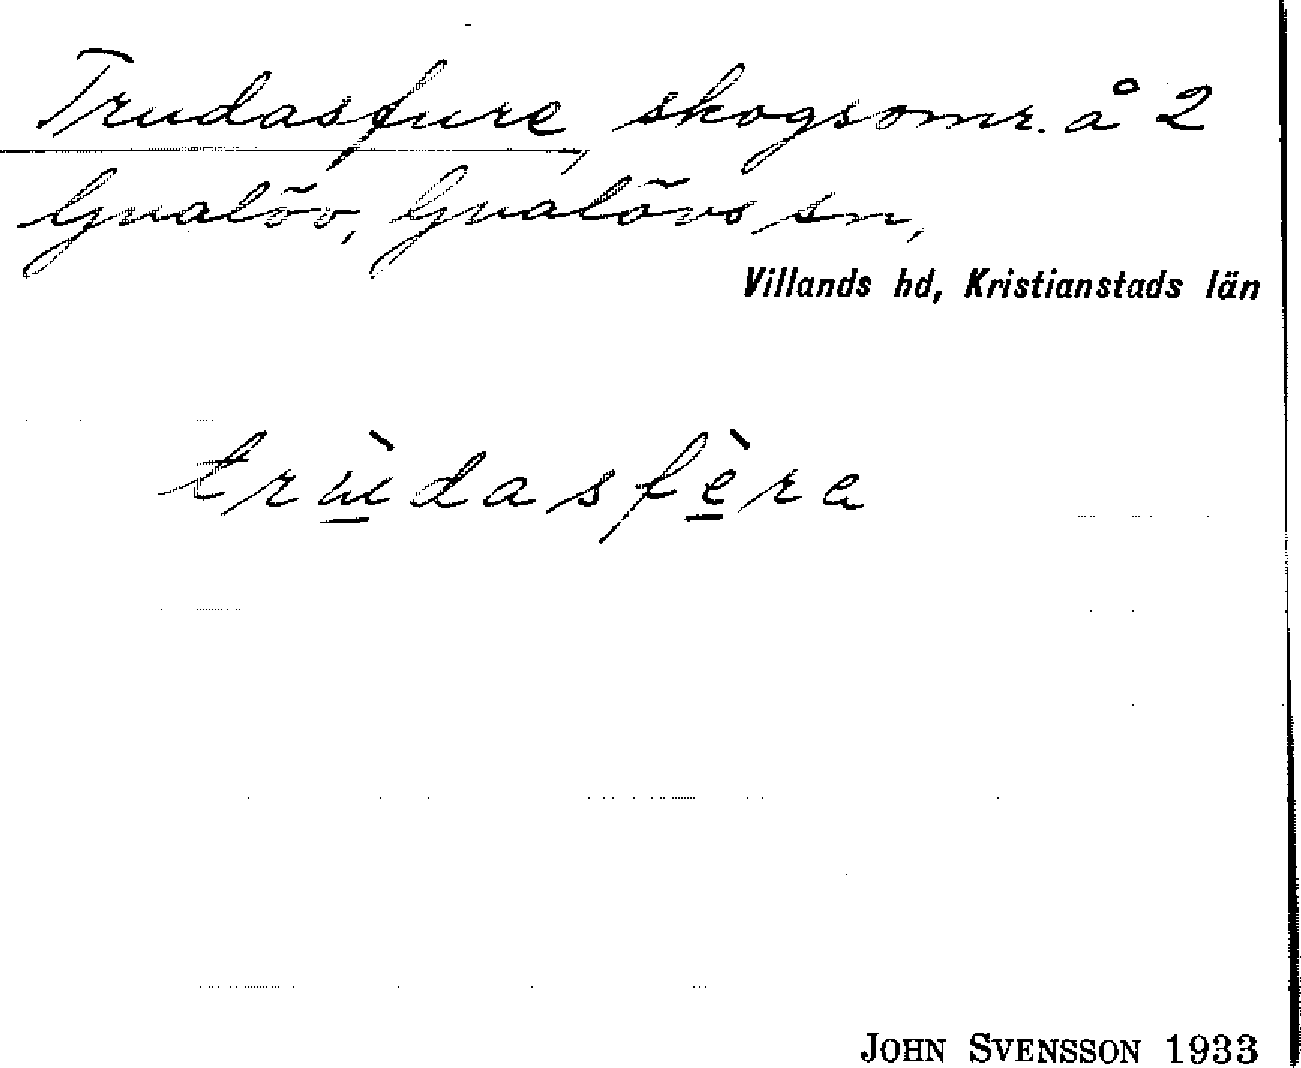 Trudasfure, skogsomr. å 2
Gualöv, Gualövs sn,
Villands hd, Kristianstads län
trɯ̀dasfèra
JOHN SVENSSON 1933